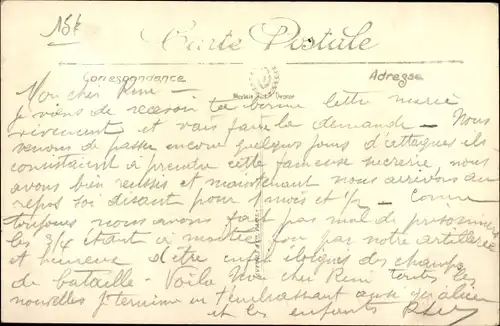 15f
Carte Postale
Correspondance
Adresse
Mon cher René –
je viens de recevoir ta bonne lettre merci
vivement et vais faire la demande – Nous
venons de passer encore quelques jours d'attaques ils
consistaient à prendre cette fameuse sucrerie, nous
avons bien reussis et maintenant nous arrivons au
repos soi disant pour 1 mois et ½ – Comme
toujours nous avons fait pas mal de prisonniers
les 3/4 étant à moitié fou par notre artillerie
et heureux d'être enfin éloignés des champs
de bataille – Voila mon cher René toutes les
nouvelles Je termine en t'embrassant ainsi qu'
et les enfants